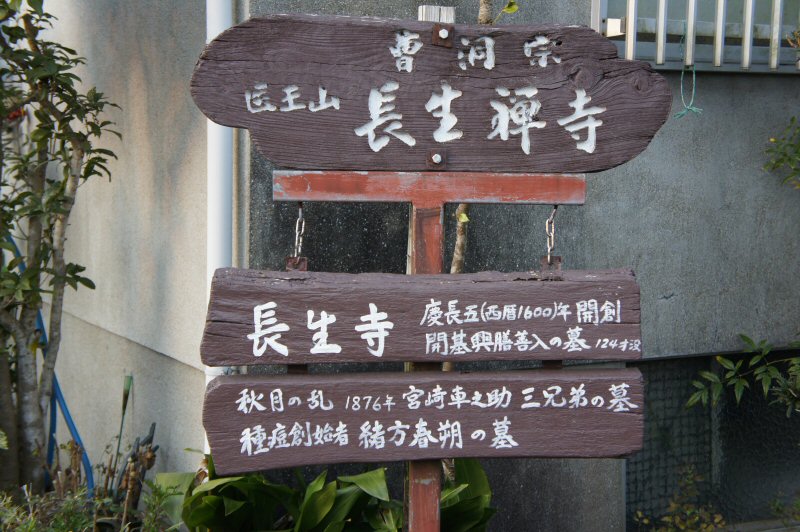 曹洞宗
医王山 長生禅寺
長生寺
慶長五(西暦1600)年 開創
開基興膳善入の墓 124才没
秋月の乱 1876年 宮崎車之助 三兄弟の墓
種痘創始者 緒方春朔の墓